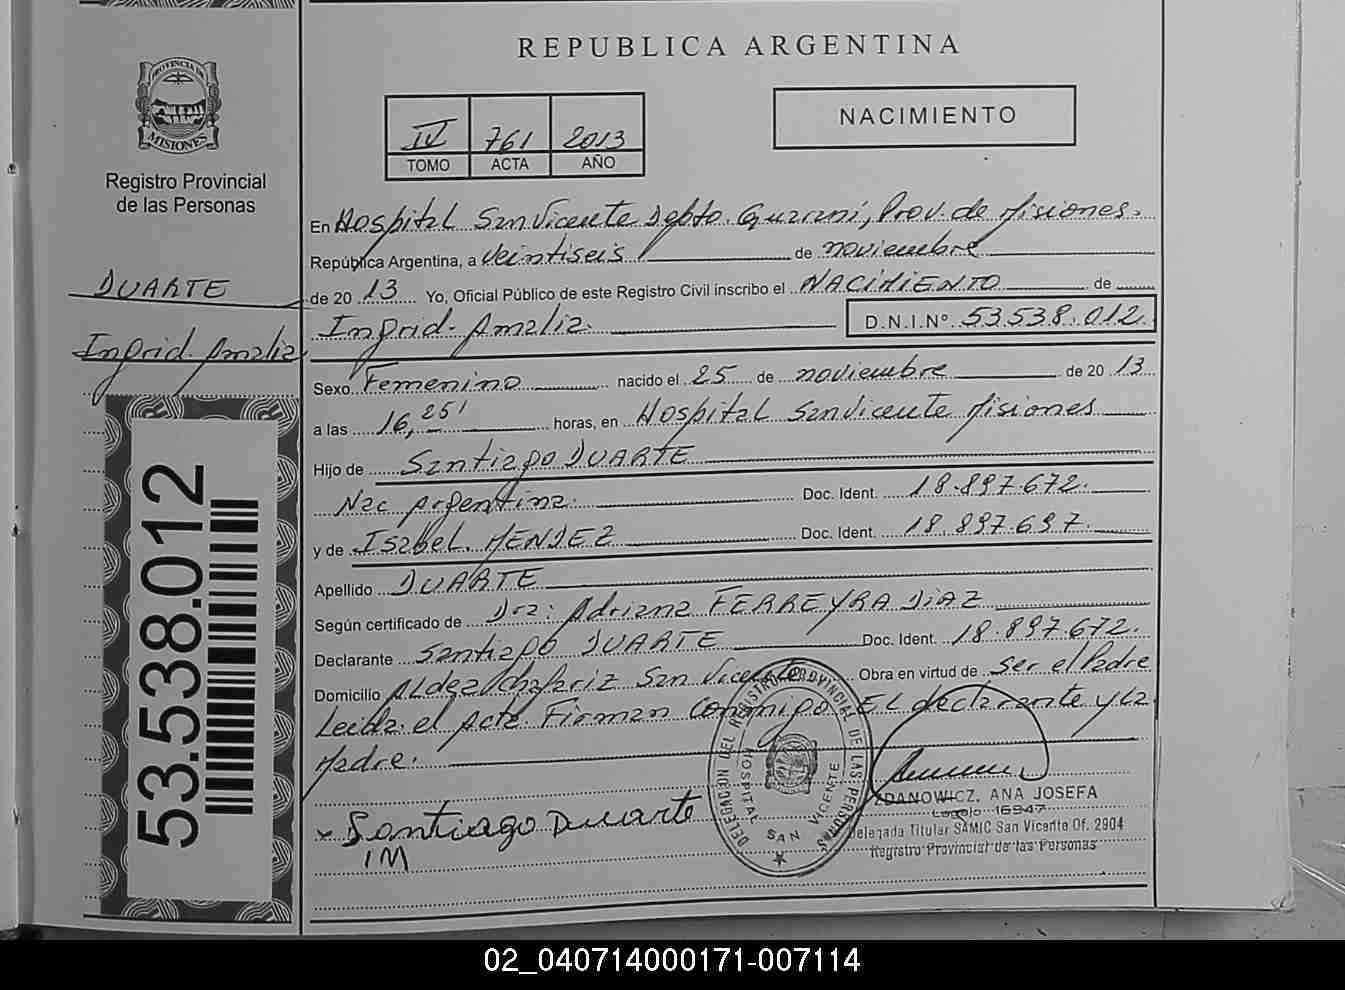 REPUBLICA ARGENTINA
PROVINCIA DE
MISIONES
Registro Provincial
de las Personas
IV 761 2013
TOMO ACTA AÑO
NACIMIENTO
DUARTE
Ingrid Amalia
53.538.012
En Hospital San Vicente Depto. Guaraní, Prov. de Misiones.
República Argentina, a veintiseis de noviembre
de 2013 Yo, Oficial Público de este Registro Civil inscribo el NACIMIENTO de
Ingrid Amalia. D.N.I.Nº 53538.012.
Sexo Femenino nacido el 25 de noviembre de 2013
a las 16,25' horas, en Hospital San Vicente Misiones
Hijo de Santiago DUARTE
Nac Argentina. Doc. Ident. 18.897.672.
y de Isabel. MENDEZ Doc. Ident. 18.897.697.
Apellido DUARTE
Según certificado de Dra: Adriana FERREYRA DIAZ
Declarante Santiago DUARTE Doc. Ident. 18.897.672.
Domicilio Aldea Chafariz San Vicente Obra en virtud de ser el Padre
Leída el Acta. Firman conmigo EL declarante y la
Madre.
x Santiago Duarte
IM
DELEGACION DEL REGISTRO PROVINCIAL DE LAS PERSONAS
HOSPITAL SAN VICENTE
ZDANOWICZ, ANA JOSEFA
Legajo 16947
Delegada Titular SAMIC San Vicente Of. 2904
Registro Provincial de las Personas
02_040714000171-007114